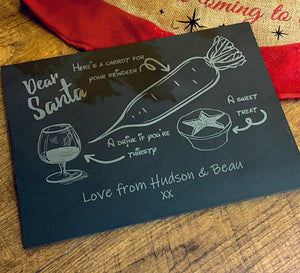 coming to
Dear
Santa
Here's a carrot for
your reindeer
A sweet
treat
A drink if you're
thirsty
Love from Hudson & Beau
xx